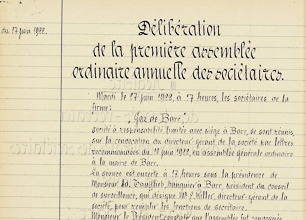 du 17 juin 1922.
Délibération
de la première assemblée
ordinaire annuelle des sociétaires.
Mardi le 27 juin 1922, à 17 heures, les sociétaires de la
firme:
"Gaz de Barr",
société à responsabilité limitée avec siège à Barr, se sont réunis,
sur la convocation du directeur-gérant de la société par lettres
recommandées du juin 1922, en assemblée générale ordinaire
à la mairie de Barr.
La séance est ouverte à 17 heures sous la présidence de
Monsieur banquier à Barr, président du conseil
de surveillance, qui désigne Mr directeur-gérant de la
société, pour remplir les fonctions de secrétaire.
Monsieur le Président constate que l'assemblée fut convoquée